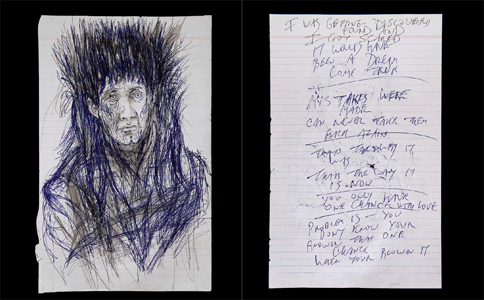 I WAS GETTING DISCOVERED
FOUND AND
I GOT SCARED
IT WOULD HAVE
BEEN A DREAM
COME TRUE
MISTAKES WERE
MADE
CAN NEVER TAKE THEM
BACK AGAIN
THATS THE WAY IT
WAS
THATS THE WAY IT
IS NOW
YOU ONLY HAVE
ONE CHANCE WITH LOVE
PROBLEM IS - YOU
DONT KNOW YOUR
BLOWIN THAT ONE
CHANCE BLOWIN IT
WHEN YOUR BLOWIN IT